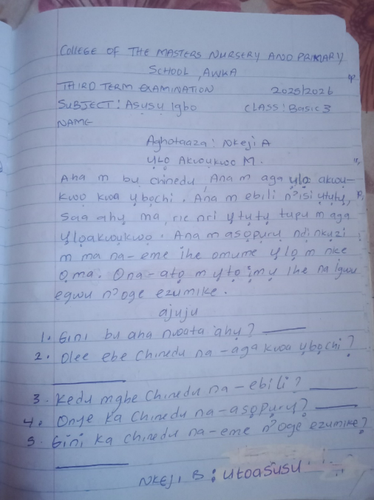 COLLEGE OF THE MASTERS NURSERY AND PRIMARY
SCHOOL, AWKA
THIRD TERM EXAMINATION 2025/2026
SUBJECT: Asụsụ Igbo CLASS: Basic 3
NAME
Aghọtaaza: Nkeji A
Ụlọ Akwụkwọ M.
Aha m bụ Chinedu, Ana m aga ụlọ akwụ-
kwọ kwa ụbọchị. Ana m ebili n'isi ụtụtụ,
Saa ahụ ma, rie nri ụtụtụ tupu m aga
ụlọakwụkwọ. Ana m asọpụrụ ndị nkuzi
m ma na-eme ihe omume ụlọ m nke
ọma. Ọna-atọ m ụtọ ịmụ ihe na igwu
egwu n'oge ezumike.
ajụjụ
1. Gịnị bụ aha nwata ahụ?
2. Olee ebe Chinedu na-aga kwa ụbọchị?
3. Kedu mgbe Chinedu na-ebili?
4. Onye ka Chinedu na-asọpụrụ?
5. Gịnị ka Chinedu na-eme n'oge ezumike?
NKEJI B: Ụtọasụsụ